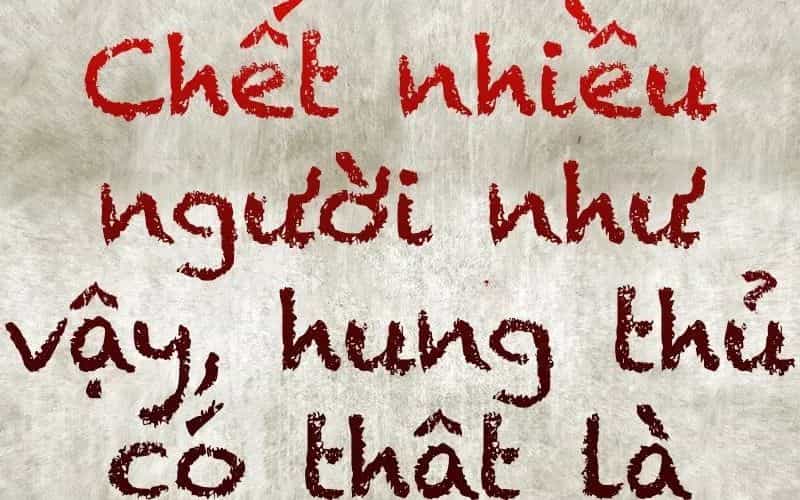 Chết nhiều
người như
vậy, hung thủ
có thật là